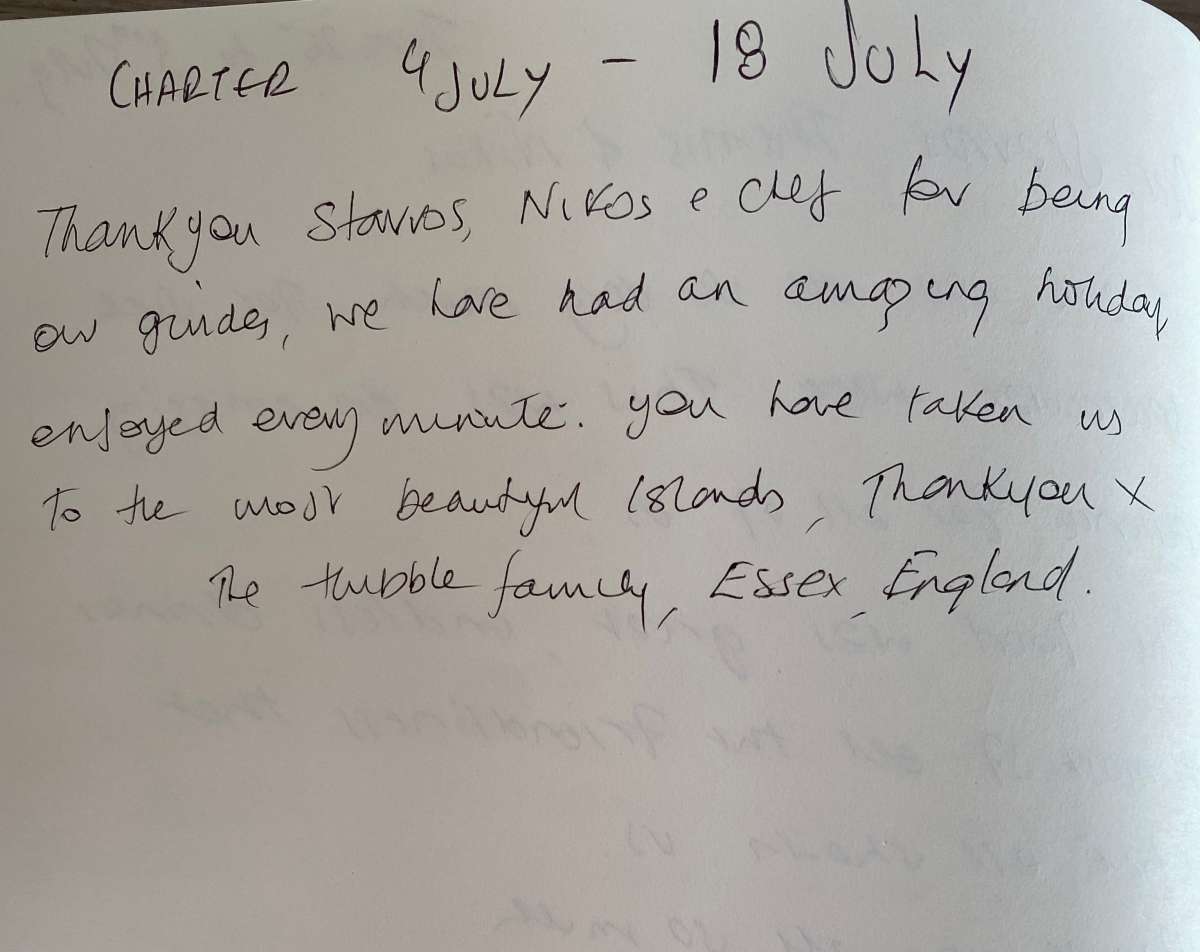 CHARTER 4 JULY - 18 JULY
Thankyou Stavros, Nikos e chef for being
our guides, we have had an amazing holiday
enjoyed every minute. you have taken us
to the most beautiful islands, Thankyou X
The Hubble family, Essex, England.